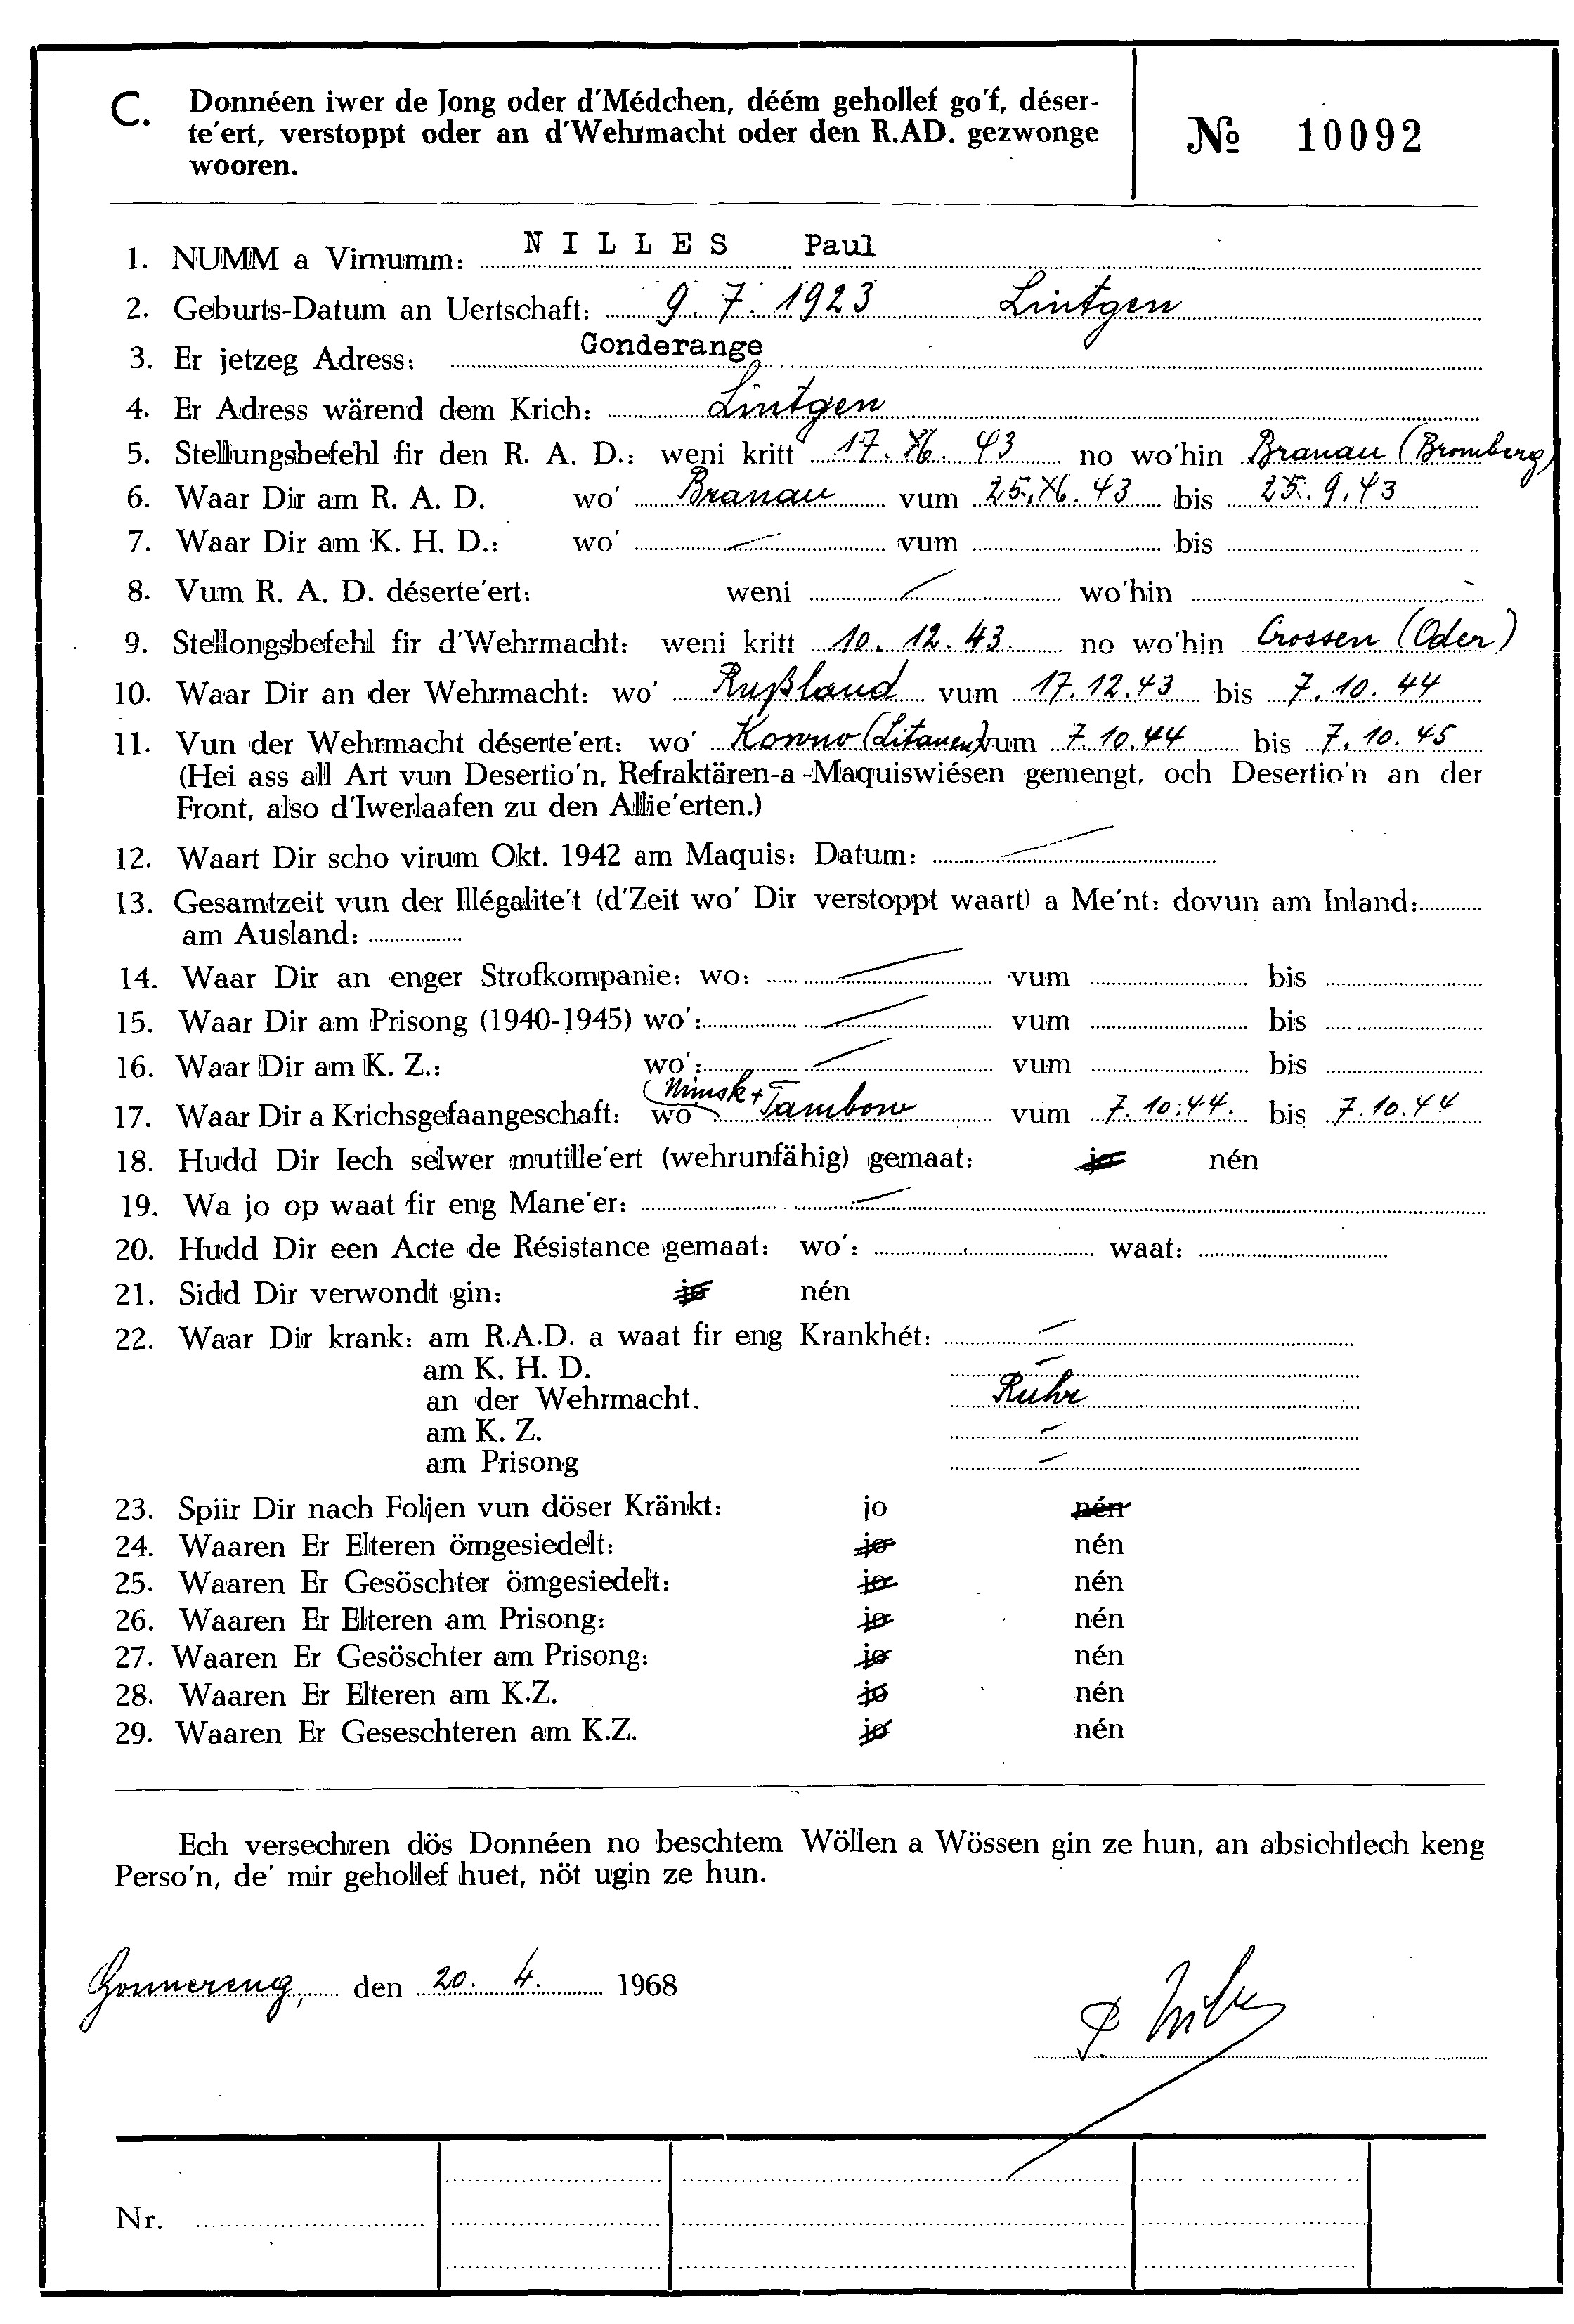 C. Donnéen iwer de Jong oder d'Médchen, déém gehollef go'f, déser-
te'ert, verstoppt oder an d'Wehrmacht oder den R.AD. gezwonge
wooren.
№ 10092
1. NUMM a Virnumm: NILLES Paul
2. Geburts-Datum an Uertschaft: 9. 7. 1923 Lintgen
3. Er jetzeg Adress: Gonderange
4. Er Adress wärend dem Krich: Lintgen
5. Stellungsbefehl fir den R. A. D.: weni kritt 17. 43 no wo'hin Branau (Bromberg)
6. Waar Dir am R. A. D. wo' Branau vum 25. 43 bis 25. 9. 43
7. Waar Dir am K. H. D.: wo' — vum bis
8. Vum R. A. D. déserte'ert: weni — wo'hin
9. Stellongsbefehl fir d'Wehrmacht: weni kritt 10. 12. 43. no wo'hin Crossen (Oder)
10. Waar Dir an der Wehrmacht: wo' Rußland vum 17. 12. 43 bis 7. 10. 44
11. Vun der Wehrmacht déserte'ert: wo' Kowno (Litauen) vum 7. 10. 44 bis 7. 10. 45
(Hei ass all Art vun Desertio'n, Refraktären-a -Maquiswiésen gemengt, och Desertio'n an der
Front, also d'Iwerlaafen zu den Allie'erten.)
12. Waart Dir scho virum Okt. 1942 am Maquis: Datum: —
13. Gesamtzeit vun der Illégalite't (d'Zeit wo' Dir verstoppt waart) a Me'nt: dovun am Inland:
am Ausland:
14. Waar Dir an enger Strofkompanie: wo: — vum bis
15. Waar Dir am Prisong (1940-1945) wo': — vum bis
16. Waar Dir am K. Z.: wo': — vum bis
17. Waar Dir a Krichsgefaangeschaft: wo (Minsk + Tambow vum 7. 10. 44. bis 7. 10. 44
18. Hudd Dir Iech selwer mutille'ert (wehrunfähig) gemaat: jo nén
19. Wa jo op waat fir eng Mane'er: —
20. Hudd Dir een Acte de Résistance gemaat: wo': waat:
21. Sidd Dir verwondt gin: jo nén
22. Waar Dir krank: am R.A.D. a waat fir eng Krankhét: —
am K. H. D. —
an der Wehrmacht. Ruhr
am K. Z. —
am Prisong —
23. Spiir Dir nach Foljen vun döser Kränkt: jo nén
24. Waaren Er Elteren ömgesiedelt: jo nén
25. Waaren Er Gesöschter ömgesiedelt: jo nén
26. Waaren Er Elteren am Prisong: jo nén
27. Waaren Er Gesöschter am Prisong: jo nén
28. Waaren Er Elteren am K.Z. jo nén
29. Waaren Er Geseschteren am K.Z. jo nén
Ech versechren dös Donnéen no beschtem Wöllen a Wössen gin ze hun, an absichtlech keng
Perso'n, de' mir gehollef huet, nöt ugin ze hun.
Gonnereng, den 20. 4. 1968
Nr.